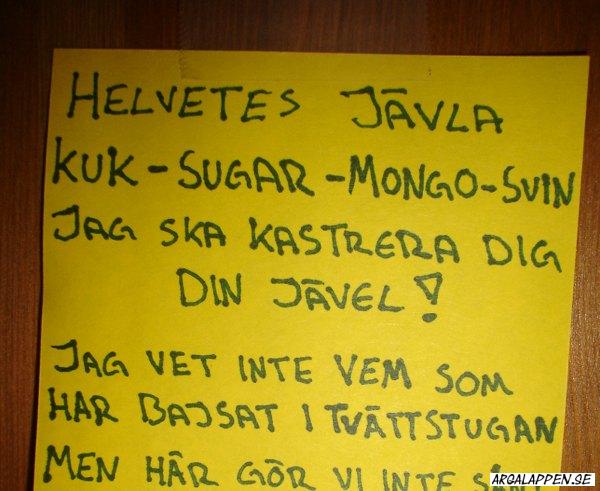 HELVETES JÄVLA
KUK-SUGAR-MONGO-SVIN
JAG SKA KASTRERA DIG
DIN JÄVEL!
JAG VET INTE VEM SOM
HAR BAJSAT I TVÄTTSTUGAN
MEN HÄR GÖR VI INTE
ARGALAPPEN.SE